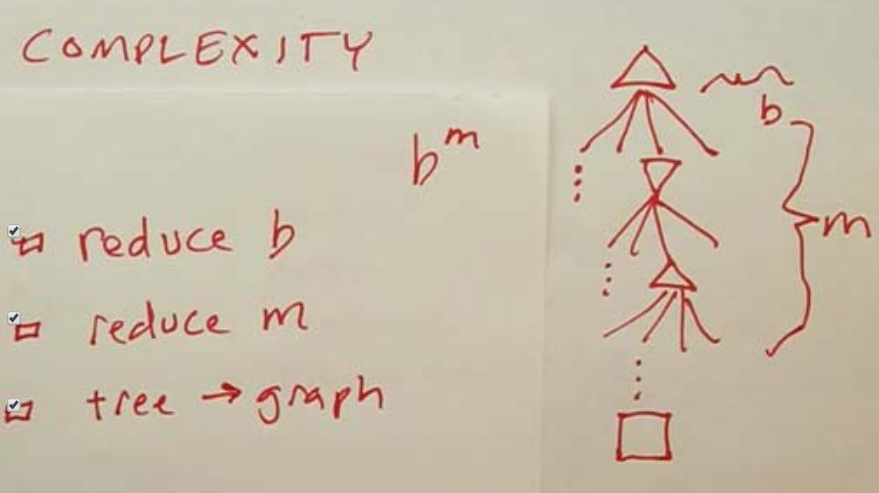 COMPLEXITY
b^m
reduce b
reduce m
tree → graph
b
m